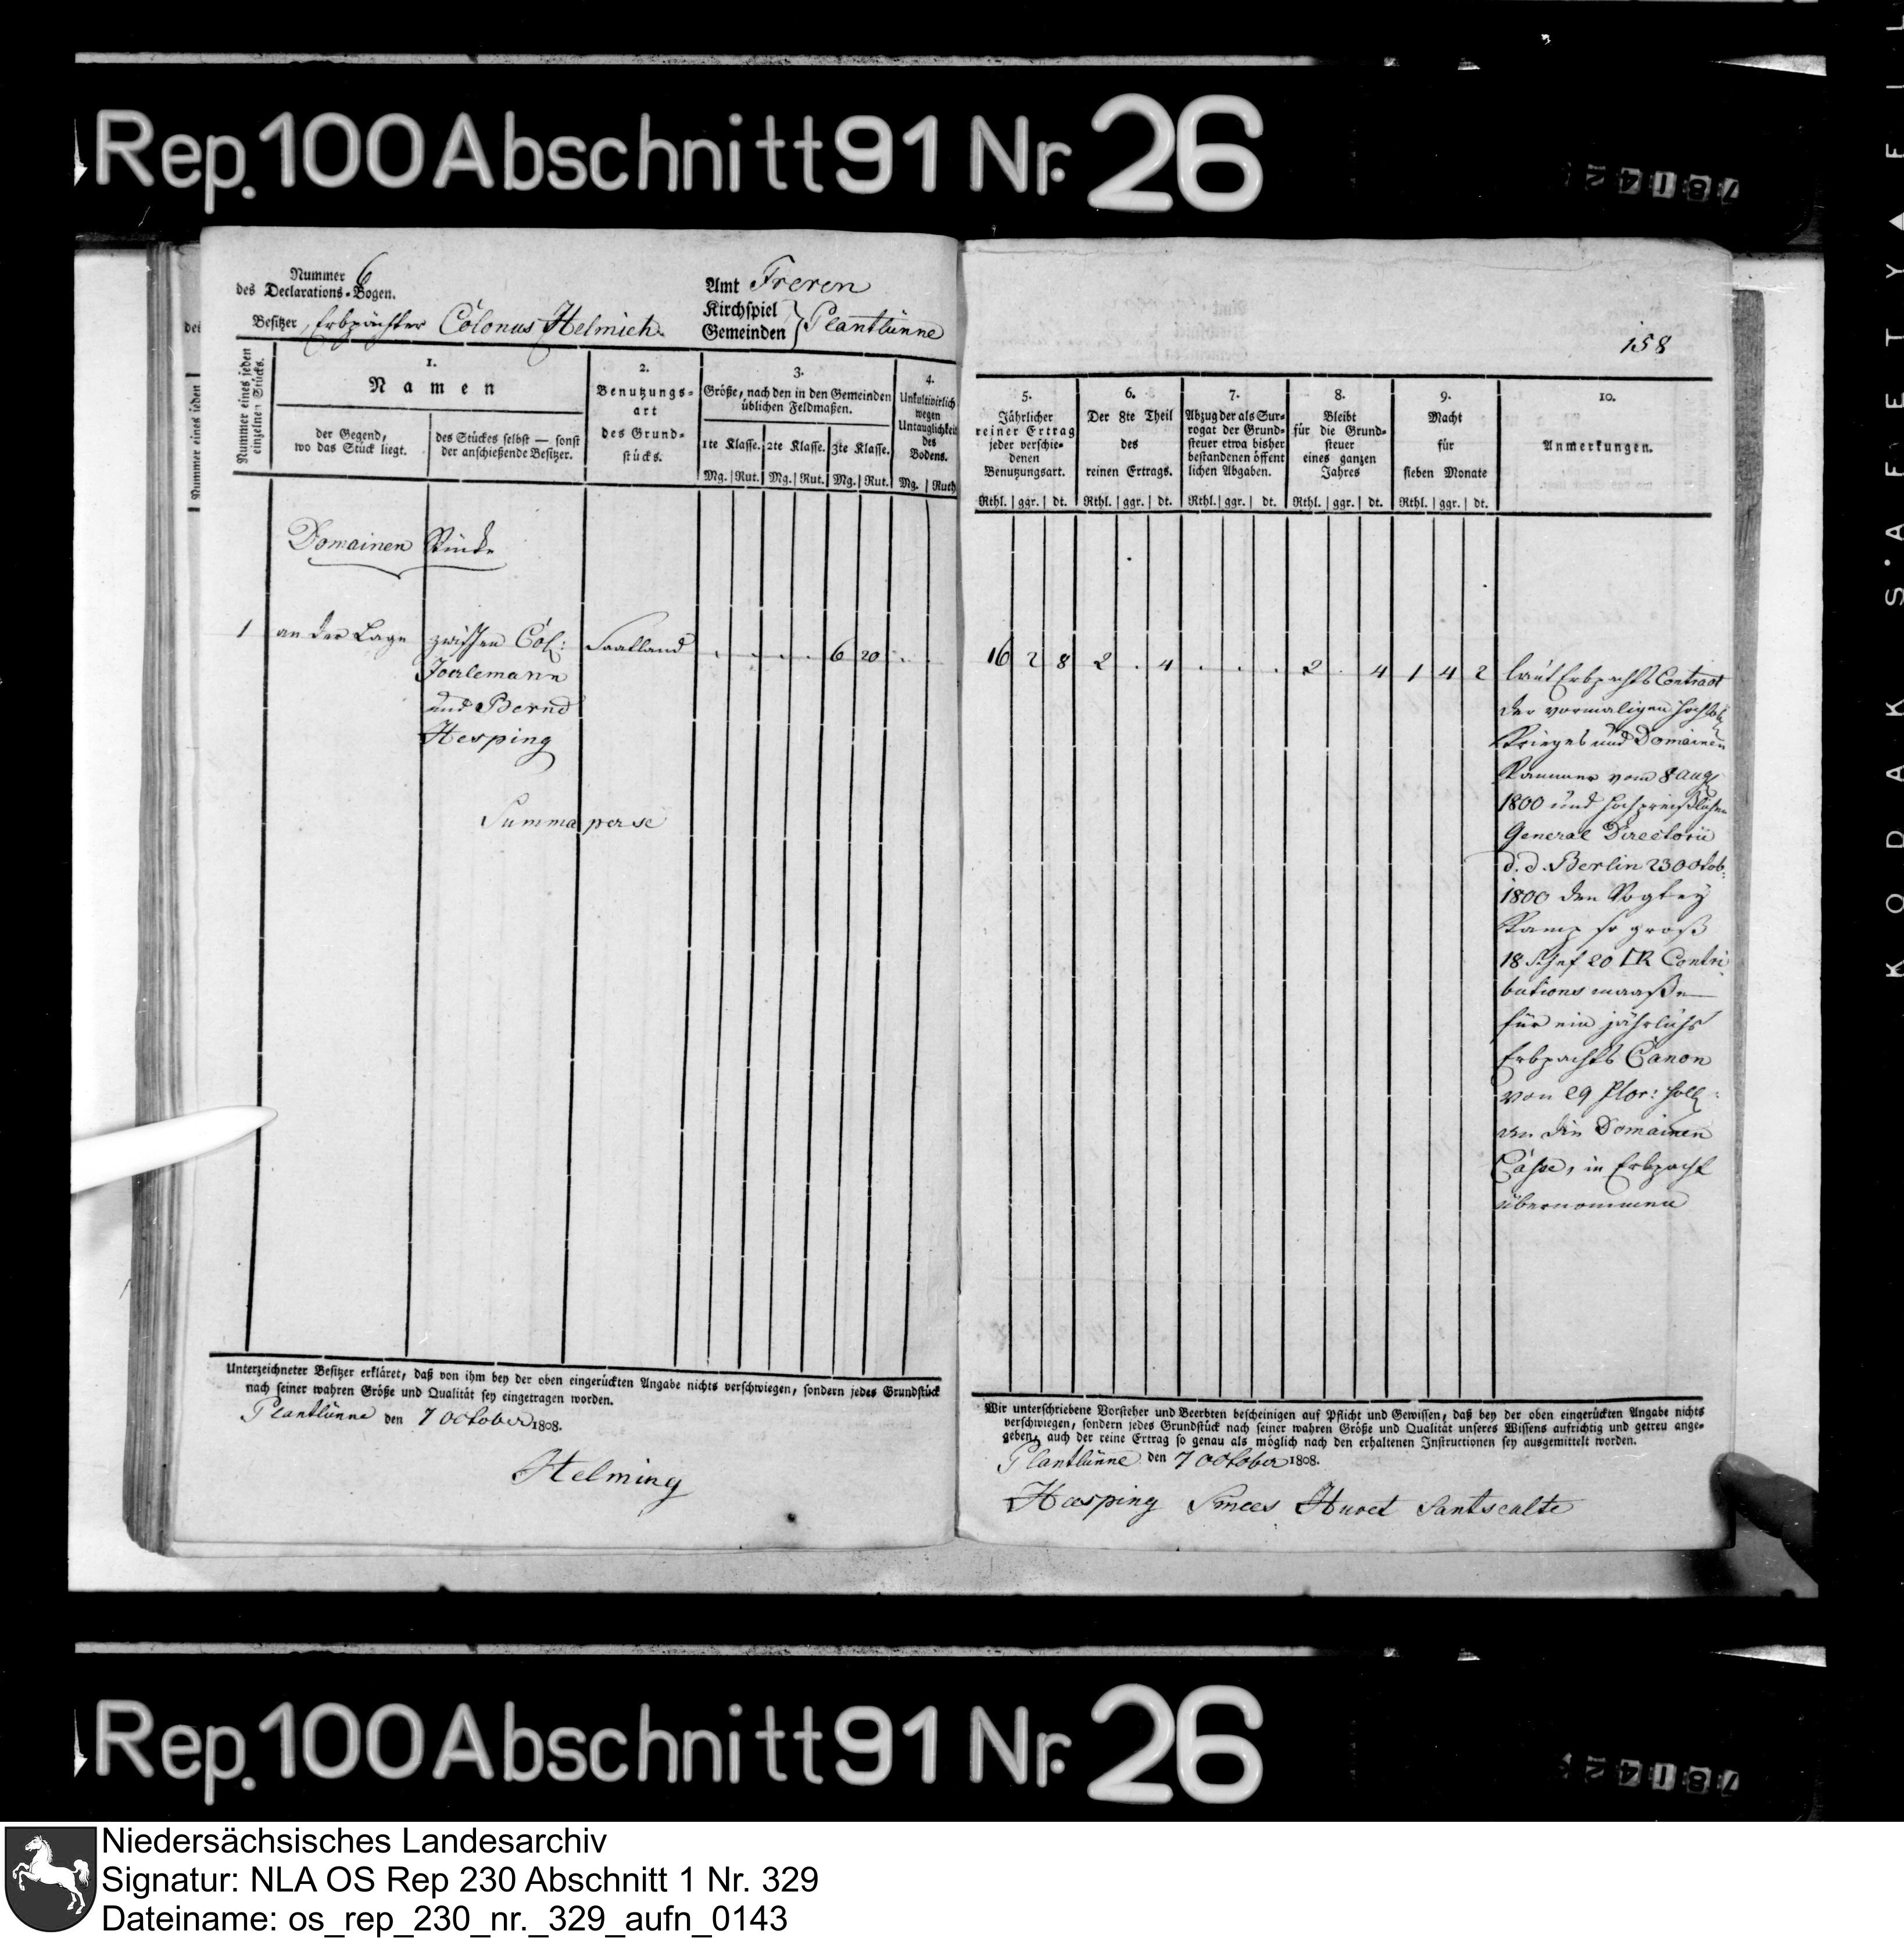 Rep. 100 Abschnitt 91 Nr. 26
78142
Nummer 6
des Declarations-Bogen.
Besitzer Erbpächter Colonus Helmich.
Amt Freren
Kirchspiel
Gemeinden } Plantlünne
158
Nummer eines jeden
einzelnen Stücks.
1.
Namen
der Gegend,
wo das Stück liegt.
des Stückes selbst — sonst
der anschießende Besitzer.
2.
Benutzungs-
art
des Grund-
stücks.
3.
Größe, nach den in den Gemeinden
üblichen Feldmaßen.
1te Klasse. 2te Klasse. 3te Klasse.
Mg. Rut. Mg. Rut. Mg. Rut.
4.
Unkultivirlich
wegen
Untauglichkeit
des
Bodens.
Mg. Ruth
5.
Jährlicher
reiner Ertrag
jeder verschie-
denen
Benutzungsart.
Rthl. ggr. dt.
6.
Der 8te Theil
des
reinen Ertrags.
Rthl. ggr. dt.
7.
Abzug der als Sur-
rogat der Grund-
steuer etwa bisher
bestandenen öffent
lichen Abgaben.
Rthl. ggr. dt.
8.
Bleibt
für die Grund-
steuer
eines ganzen
Jahres
Rthl. ggr. dt.
9.
Macht
für
sieben Monate
Rthl. ggr. dt.
10.
Anmerkungen.
Domainen Stücke
1 an der Lage zwischen Col: Saatland . . . . 6 20 . . 16 2 8 2 . 4 . . . 2 . 4 1 4 2
Joerlemann
und Bernd
Hesping
Summa per se
laut Erbpachts Contract
der vormaligen hochlöbl
Krieges und Domainen
Kammer vom 8 Aug
1800 und hochpreißlichen
General Directorii
d. d. Berlin 23 Octob:
1800 den Vogtey
Kamp so groß
18 Schef 20 □R Contri
butions maaße
für ein jährlichs
Erbpachts Canon
von 29 Flor: holl:
an die Domainen
Casse, in Erbpacht
übernommen
Unterzeichneter Besitzer erkläret, daß von ihm bey der oben eingerückten Angabe nichts verschwiegen, sondern jedes Grundstück
nach seiner wahren Größe und Qualität sey eingetragen worden.
Plantlünne den 7 October 1808.
Helming
Wir unterschriebene Vorsteher und Beerbten bescheinigen auf Pflicht und Gewissen, daß bey der oben eingerückten Angabe nichts
verschwiegen, sondern jedes Grundstück nach seiner wahren Größe und Qualität unseres Wissens aufrichtig und getreu ange-
geben, auch der reine Ertrag so genau als möglich nach den erhaltenen Instructionen sey ausgemittelt worden.
Plantlünne den 7 October 1808.
Hesping Smees Huvet Santscalte
dei
Nummer eines jeden
KODAK SAFETY
Rep. 100 Abschnitt 91 Nr. 26
78142
Niedersächsisches Landesarchiv
Signatur: NLA OS Rep 230 Abschnitt 1 Nr. 329
Dateiname: os_rep_230_nr._329_aufn_0143